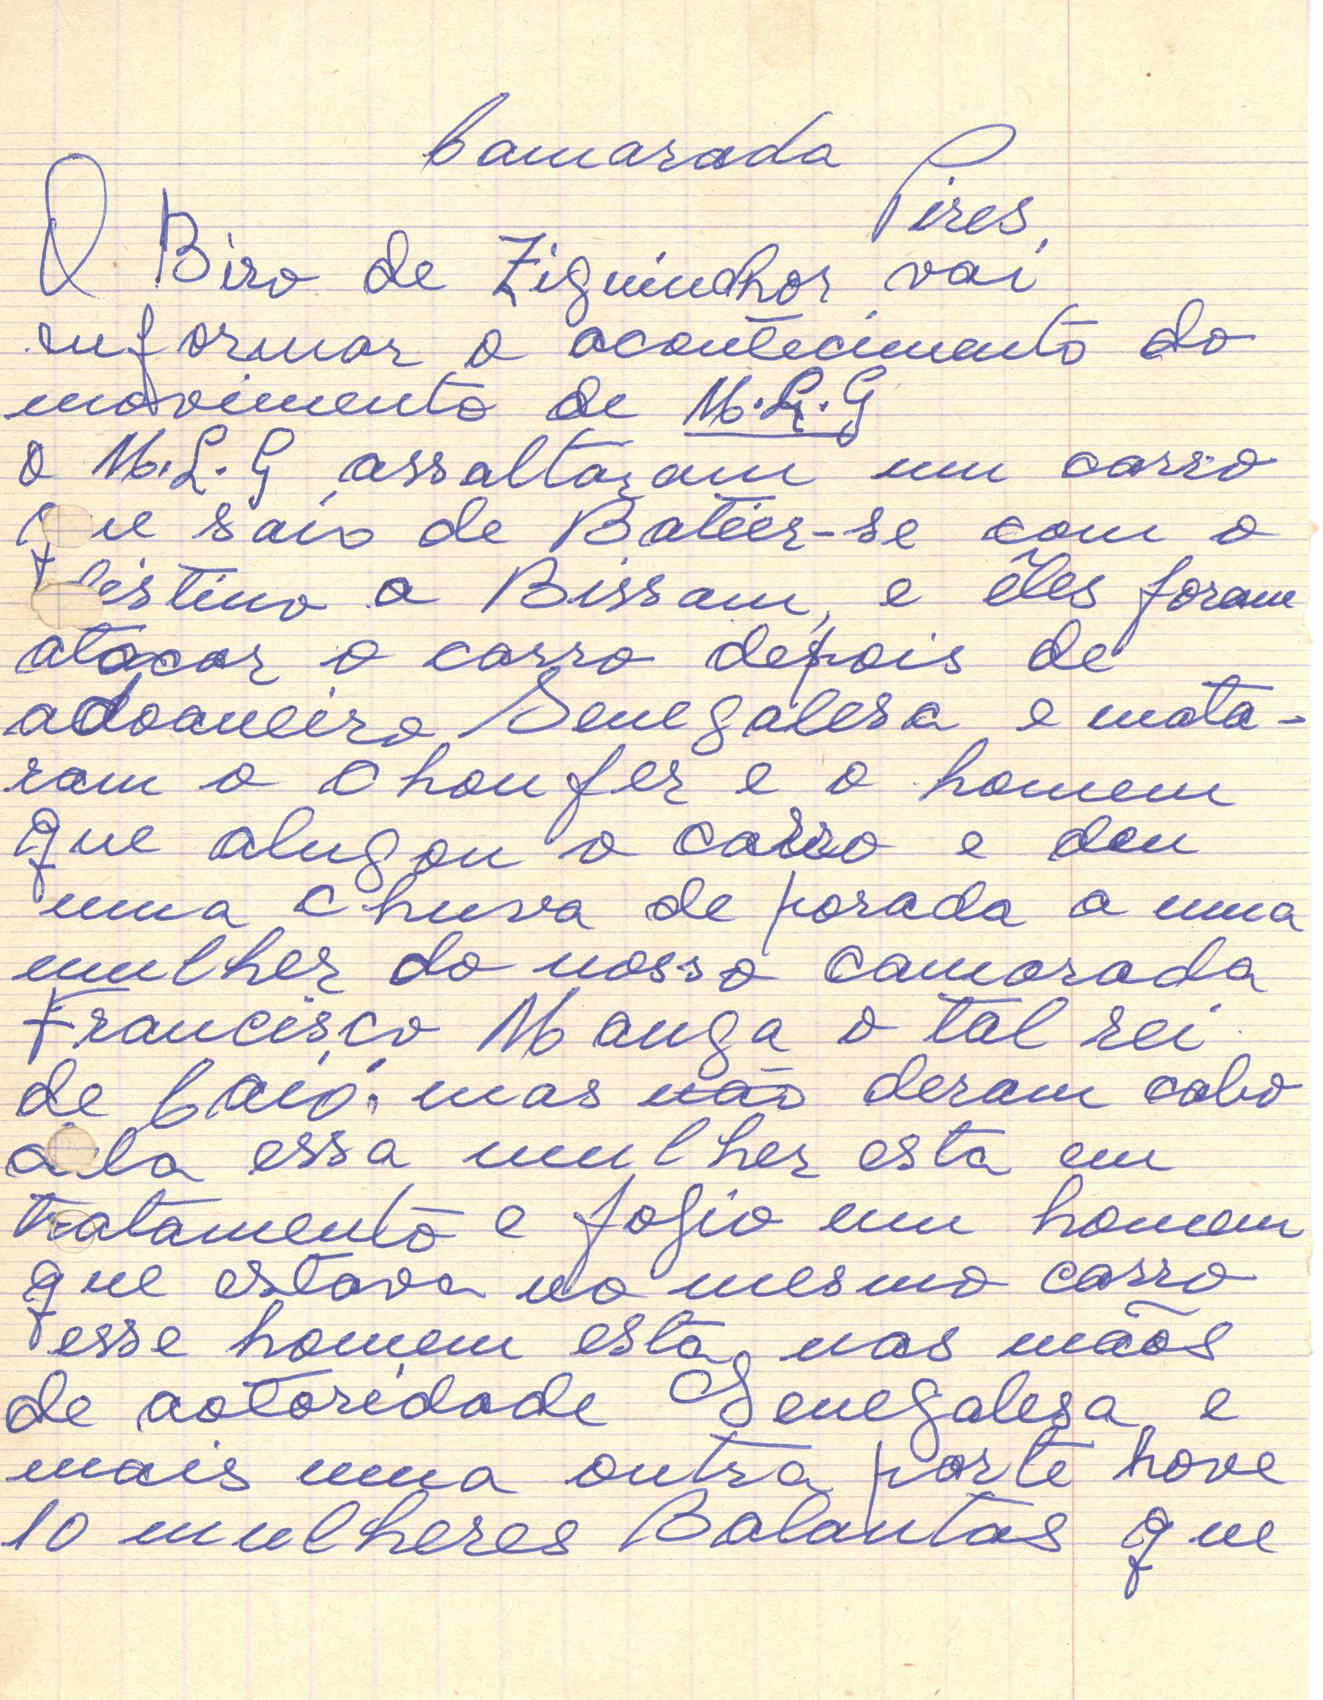 Camarada
Pires,
O Biro de Ziguinchor, vai
informar o acontecimento do
movimento de M.L.G
O M.L.G, assaltaram um carro
que saio de Batéer-se com o
destino a Bissau, e êles foram
atacar o carro depois de
adoaneiro Senegalesa e mata-
ram o Choufer e o homem
que alugou o carro e deu
uma chuva de porada a uma
mulher do nosso camarada
Francisco Manga o tal rei
de Caió. mas não deram cabo
dela essa mulher esta em
tratamento e fogio um homem
que estava no mesmo carro
esse homem está nas mãos
de aotoridade Senegalesa e
mais uma outra parte hove
10 mulheres Balantas que